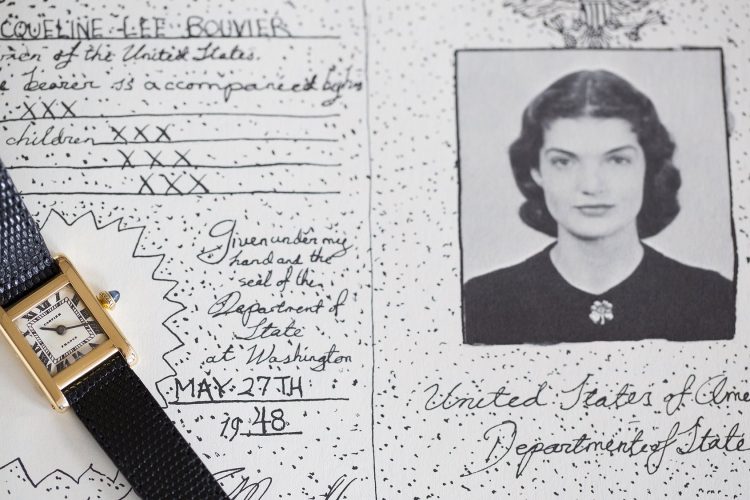 CQUELINE LEE BOUVIER
of the United States.
bearer is accompanied by
XXX
children XXX
XXX
XXX
Given under my
hand and the
seal of the
Department of
State
at Washington
MAY 27TH
1948
United States of Ame
Department of State
CARTIER